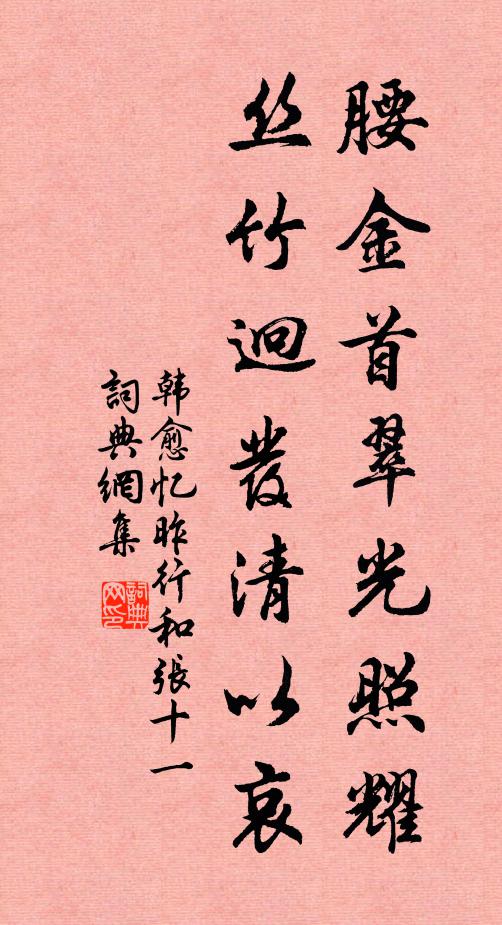 腰金首翠光照耀
丝竹迥發清以哀
韩愈忆昨行和張十一
詞典網集
詞典网印